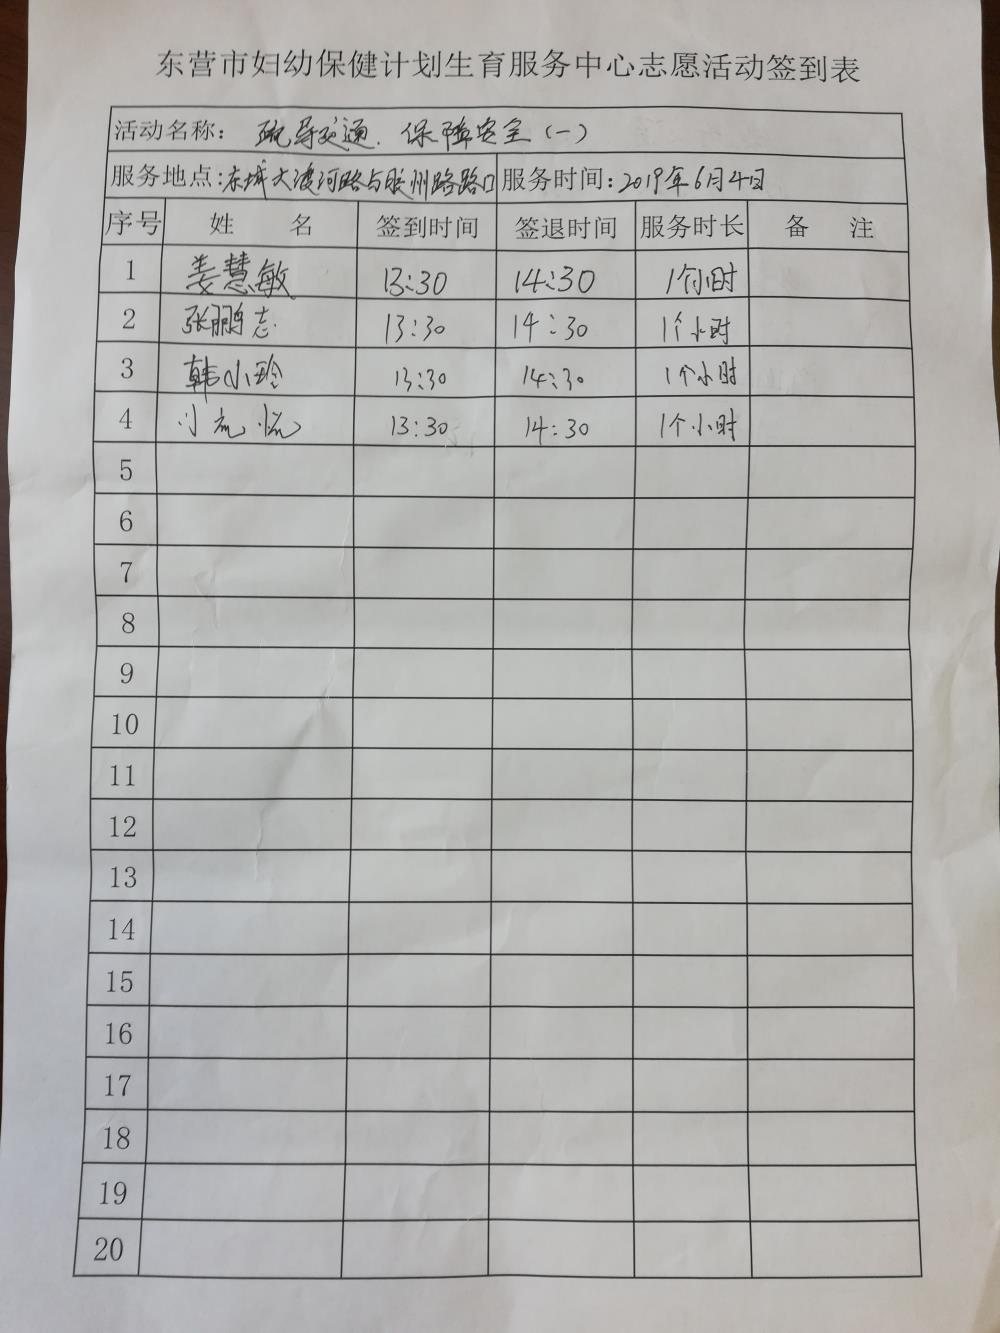 东营市妇幼保健计划生育服务中心志愿活动签到表
活动名称: 疏导交通、保障安全(一)
服务地点:东城大渡河路与胶州路路口 服务时间:2019年6月4日
序号 姓 名 签到时间 签退时间 服务时长 备 注
1 姜慧敏 13:30 14:30 1个小时
2 张鹏志 13:30 14:30 1个小时
3 韩小玲 13:30 14:30 1个小时
4 13:30 14:30 1个小时
5
6
7
8
9
10
11
12
13
14
15
16
17
18
19
20